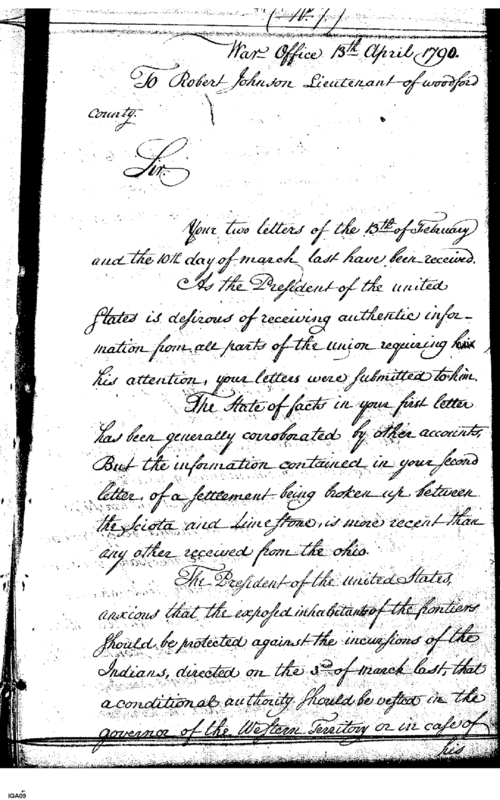 (No. 1)
War Office 13th April, 1790.
To Robert Johnson Lieutenant of woodford
county.
Sir.
Your two letters of the 13th of February
and the 10th day of march last have been received.
As the President of the united
States is desirous of receiving authentic infor-
mation from all parts of the union requiring
his attention, your letters were submitted to him.
The State of facts in your first letter
has been generally corroborated by other accounts,
But the information contained in your second
letter, of a settlement being broken up between
the Sciota and Limestone, is more recent than
any other received from the ohio.
The President of the united States,
anxious that the exposed inhabitants of the frontiers
should be protected against the incursions of the
Indians, directed on the 3rd of march last, that
a conditional authority should be vested in the
governor of the Western Territory or in case of
his
IGA09